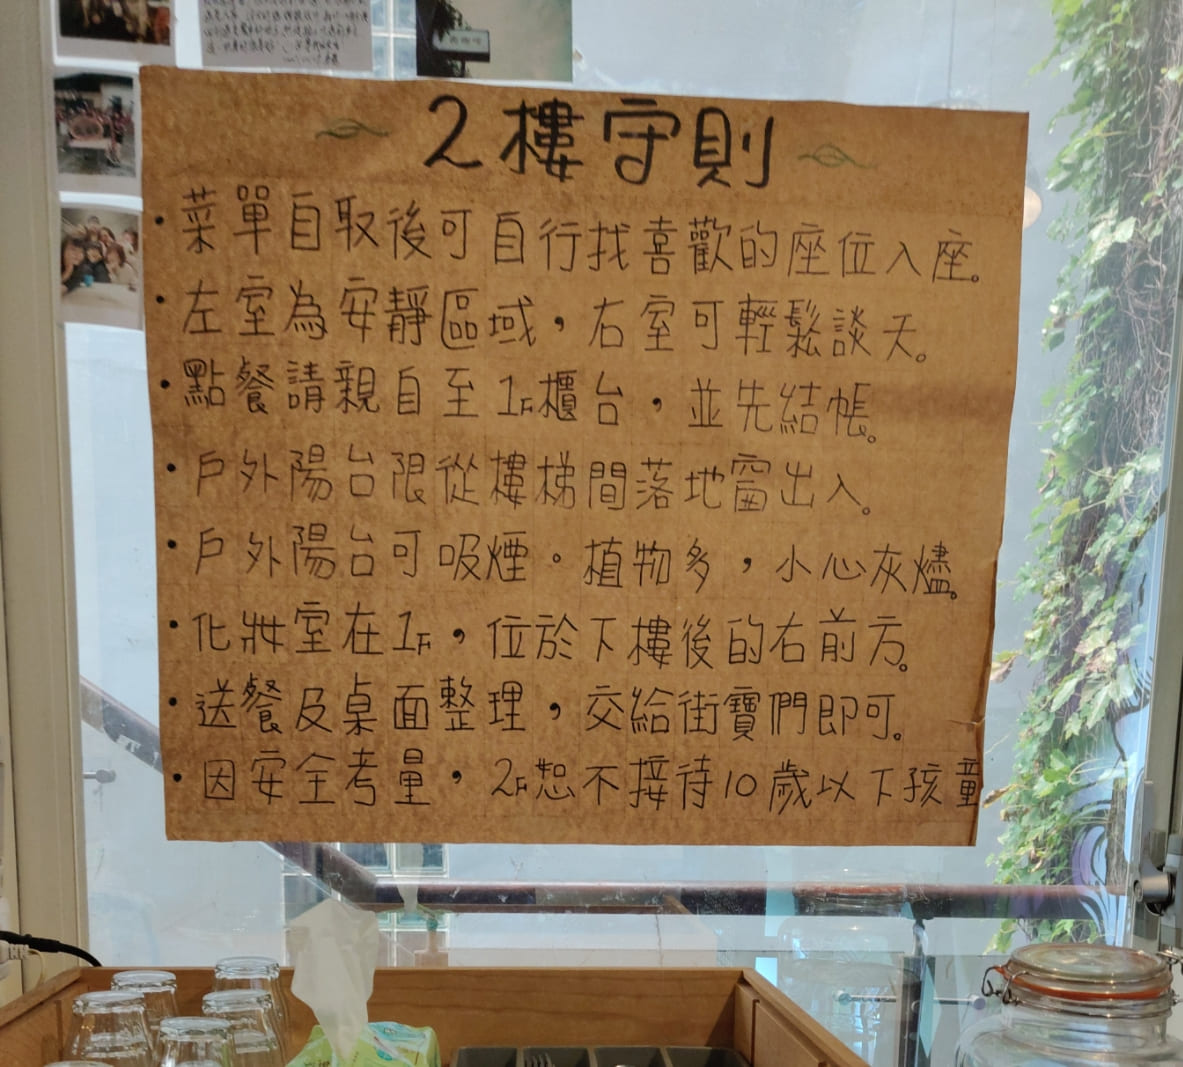 2樓守則
・菜單自取後可自行找喜歡的座位入座。
・左室為安靜區域，右室可輕鬆談天。
・點餐請親自至1F櫃台，並先結帳。
・戶外陽台限從樓梯間落地窗出入。
・戶外陽台可吸煙。植物多，小心灰燼。
・化妝室在1F，位於下樓後的右前方。
・送餐及桌面整理，交給街寶們即可。
・因安全考量，2F恕不接待10歲以下孩童